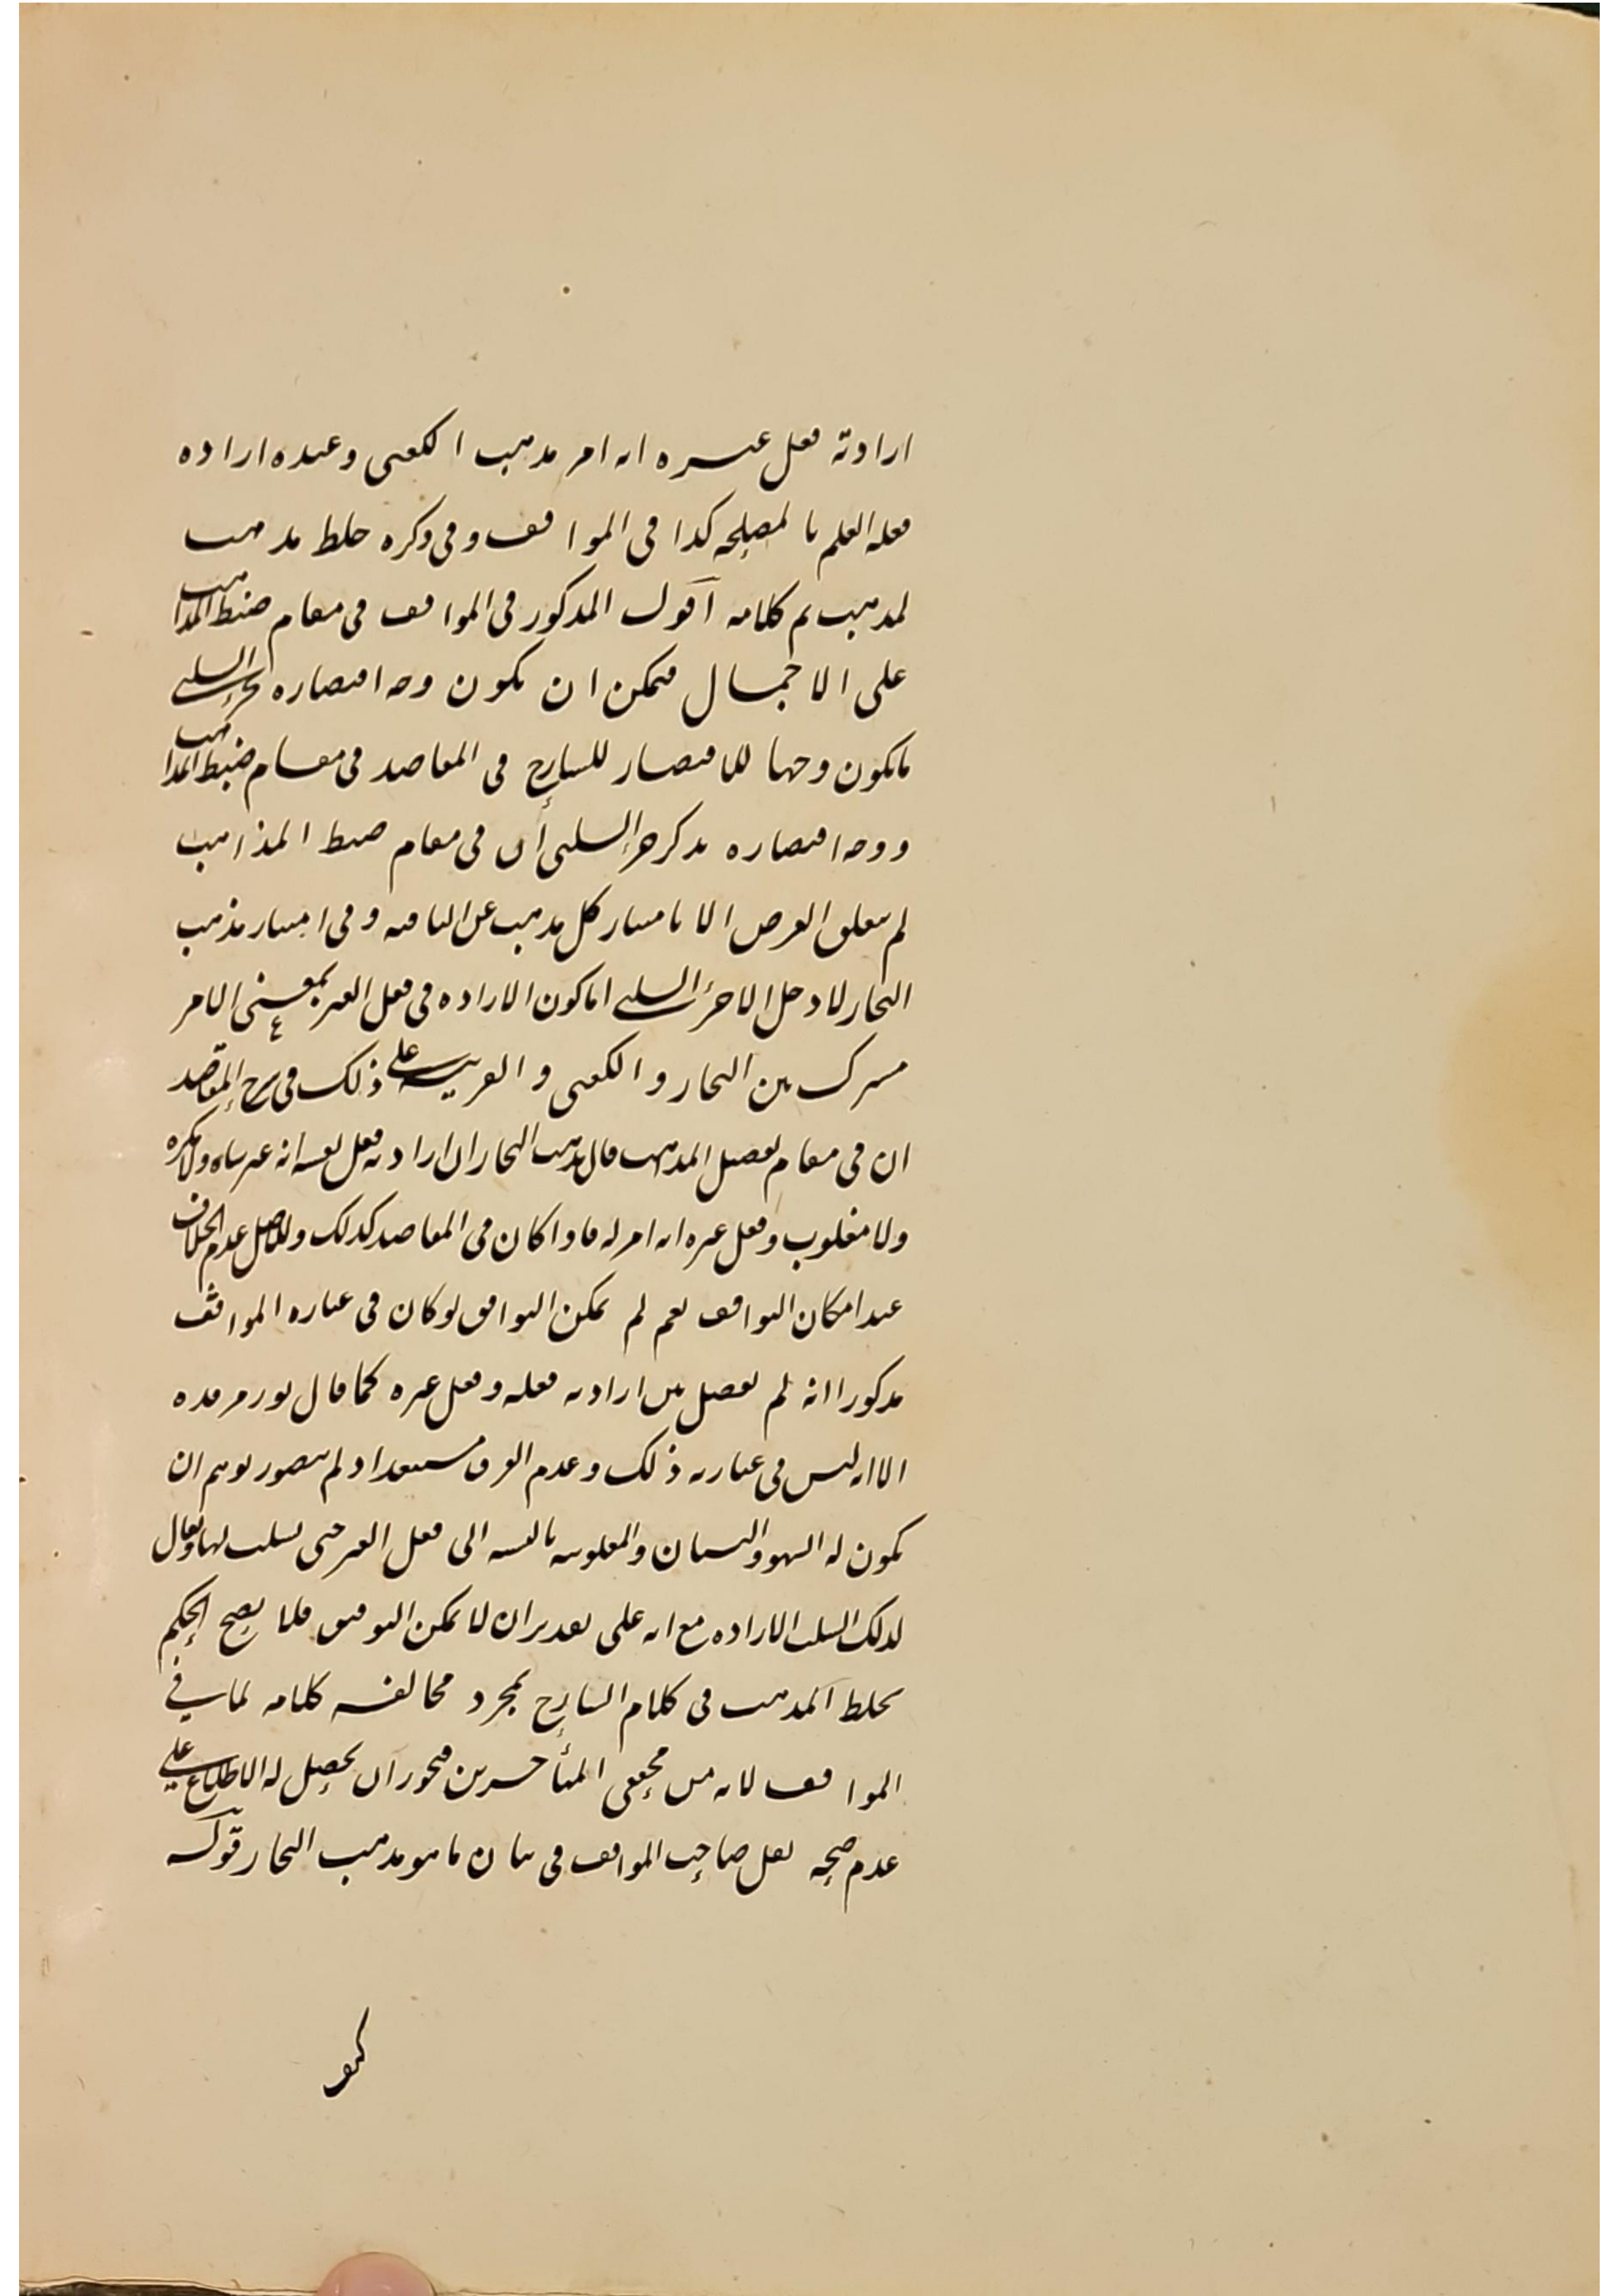 ارادته فعل غيره انه امر مذهب الكعبى وعنده اراده
فعله العلم بالمصلحه كذا فى المواقف وفى ذكره خلط مذهب
لمذهب تم كلامه اقول المذكور فى المواقف فى مقام ضبط المذاهب
على الاجمال فيمكن ان يكون وجه اقتصاره بجزء السلبى
مايكون وجها للاقتصار للشارح فى المقاصد فى مقام ضبط المذاهب
ووجه اقتصاره بذكر جزء السلبى ان فى مقام ضبط المذاهب
لم يتعلق الغرض الا بامتياز كل مذهب عن الباقيه وفى امتياز مذهب
النجار لا دخل الا لجزء السلبى اما كون الاراده فى فعل الغير بمعنى الامر
مشترك بين النجار والكعبى والقرينه على ذلك فى شرح المقاصد
ان فى مقام تفصيل المذهب قال مذهب النجار ان ارادته فعل نفسه انه غير ساه ولا مكره
ولا مغلوب وفعل غيره انه امر له فاذا كان فى المقاصد كذلك وللاصل عدم الخلاف
عند امكان التوافق نعم لم يمكن التوافق لو كان فى عباره المواقف
مذكورا انه لم يفصل بين ارادته فعله وفعل غيره كما قال نور مرقده
الا انه ليس فى عبارته ذلك وعدم الفرق مستبعد اذ لم يتصور توهم ان
يكون له السهو والنسيان والمغلوبيه بالنسبه الى فعل الغير حتى يسلب لها ويقال
لذلك السلب الاراده مع انه على تقدير ان لا يمكن التوفيق فلا يصح الحكم
بخلط المذهب فى كلام الشارح بمجرد مخالفه كلامه لما فى
المواقف لانه من محققى المتأخرين فيجوز ان يحصل له الاطلاع على
عدم صحه نقل صاحب المواقف فى بيان ما هو مذهب النجار قوله